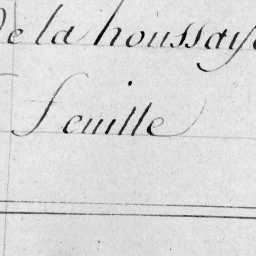 De la houssaye
feuille